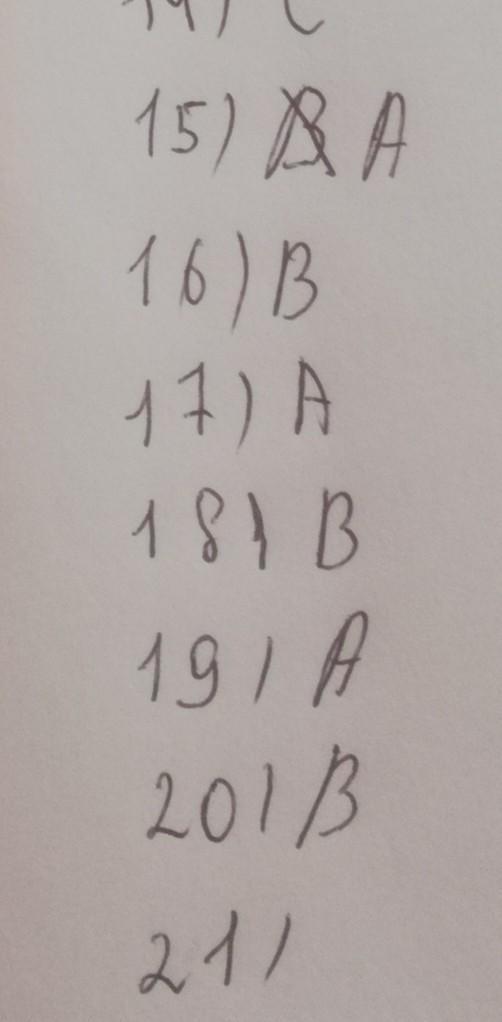 14) C
15) A
16) B
17) A
18) B
19) A
20) B
21)